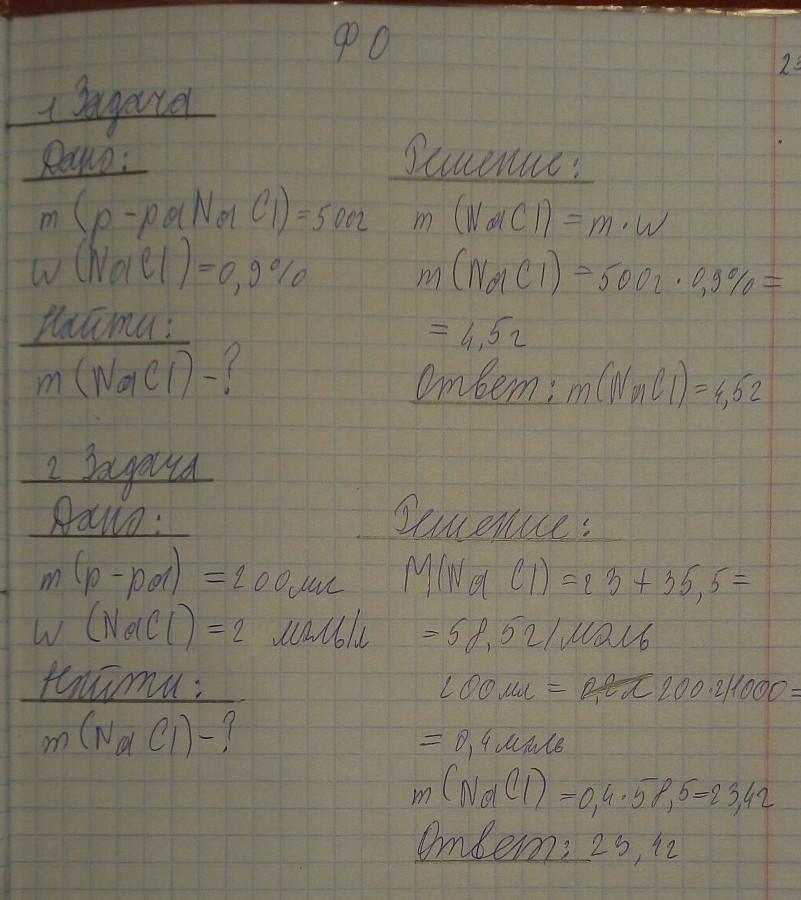 ФО
23
1 Задача
Дано:
m (р-ра NaCl) = 500г
w (NaCl) = 0,9%
Найти:
m (NaCl) - ?
Решение:
m (NaCl) = m · w
m (NaCl) = 500г · 0,9% =
= 4,5г
Ответ: m (NaCl) = 4,5г
2 Задача
Дано:
m (р-ра) = 200мл
w (NaCl) = 2 моль/л
Найти:
m (NaCl) - ?
Решение:
M (NaCl) = 23 + 35,5 =
= 58,5г/моль
200мл = 200·2/1000 =
= 0,4моль
m (NaCl) = 0,4·58,5=23,4г
Ответ: 23,4г